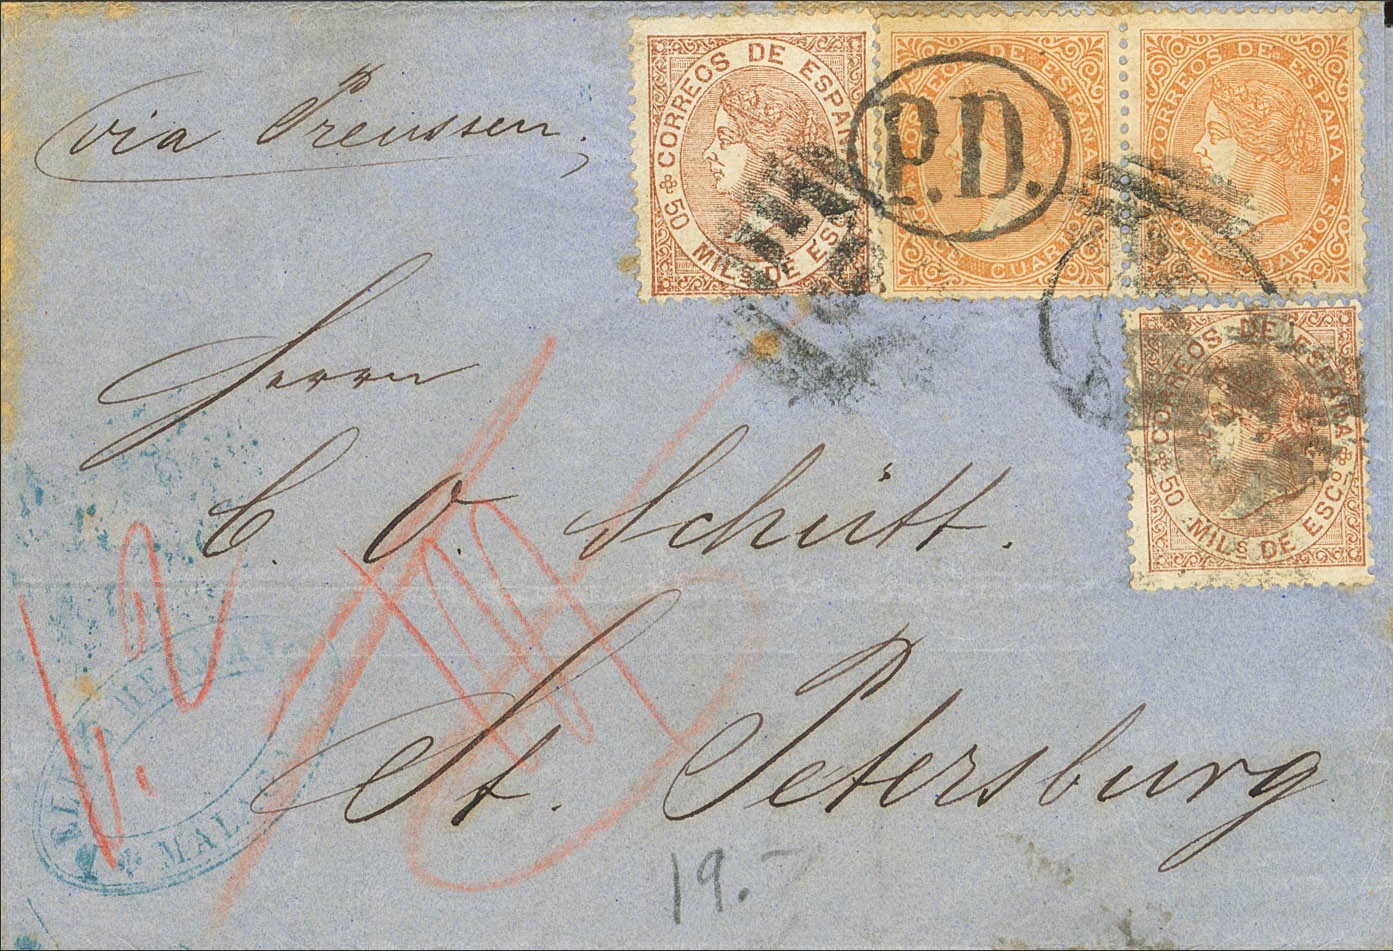 via Preussen.
CORREOS DE ESPAÑA
50 MILS DE ESCO
P.D.
CORREOS DE ESPAÑA
CUARTOS
CORREOS DE ESPAÑA
DOCE CUARTOS.
CORREOS DE ESPAÑA
50 MILS DE ESCO
Herrn
C. O. Schütt.
St. Petersburg
MALAGA
19.